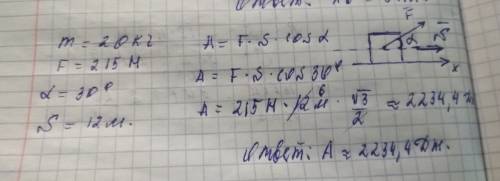 m = 20 кг
F = 215 Н
α = 30°
S = 12 м.
A = F · S · cos α
A = F · S · cos 30°
A = 215 Н · 12 м · √3/2 ≈ 2234,4 Дж
6
Ответ: A ≈ 2234,4 Дж.
F
α
S
x